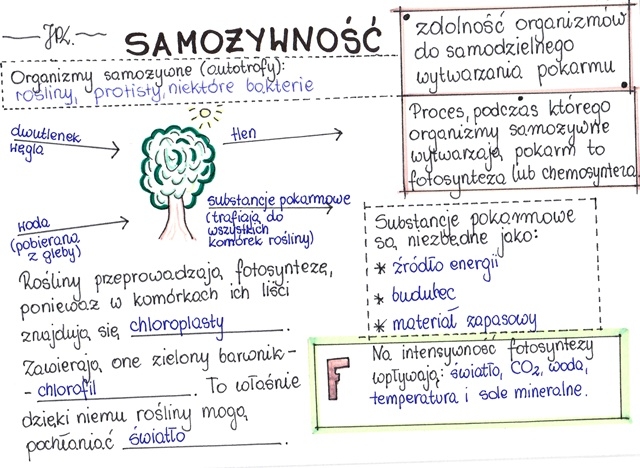 JPK.
SAMOŻYWNOŚĆ
zdolność organizmów
do samodzielnego
wytwarzania pokarmu
Organizmy samożywne (autotrofy):
rośliny, protisty, niektóre bakterie
Proces, podczas którego
organizmy samożywne
wytwarzają pokarm to
fotosynteza lub chemosynteza
dwutlenek
węgla
tlen
woda
(pobierana
z gleby)
substancje pokarmowe
(trafiają do
wszystkich
komórek rośliny)
Substancje pokarmowe
są niezbędne jako:
* źródło energii
* budulec
* materiał zapasowy
Rośliny przeprowadzają fotosyntezę,
ponieważ w komórkach ich liści
znajdują się chloroplasty.
Zawierają one zielony barwnik-
- chlorofil. To właśnie
dzięki niemu rośliny mogą
pochłaniać światło.
F
Na intensywność fotosyntezy
wpływają: światło, CO₂, woda,
temperatura i sole mineralne.